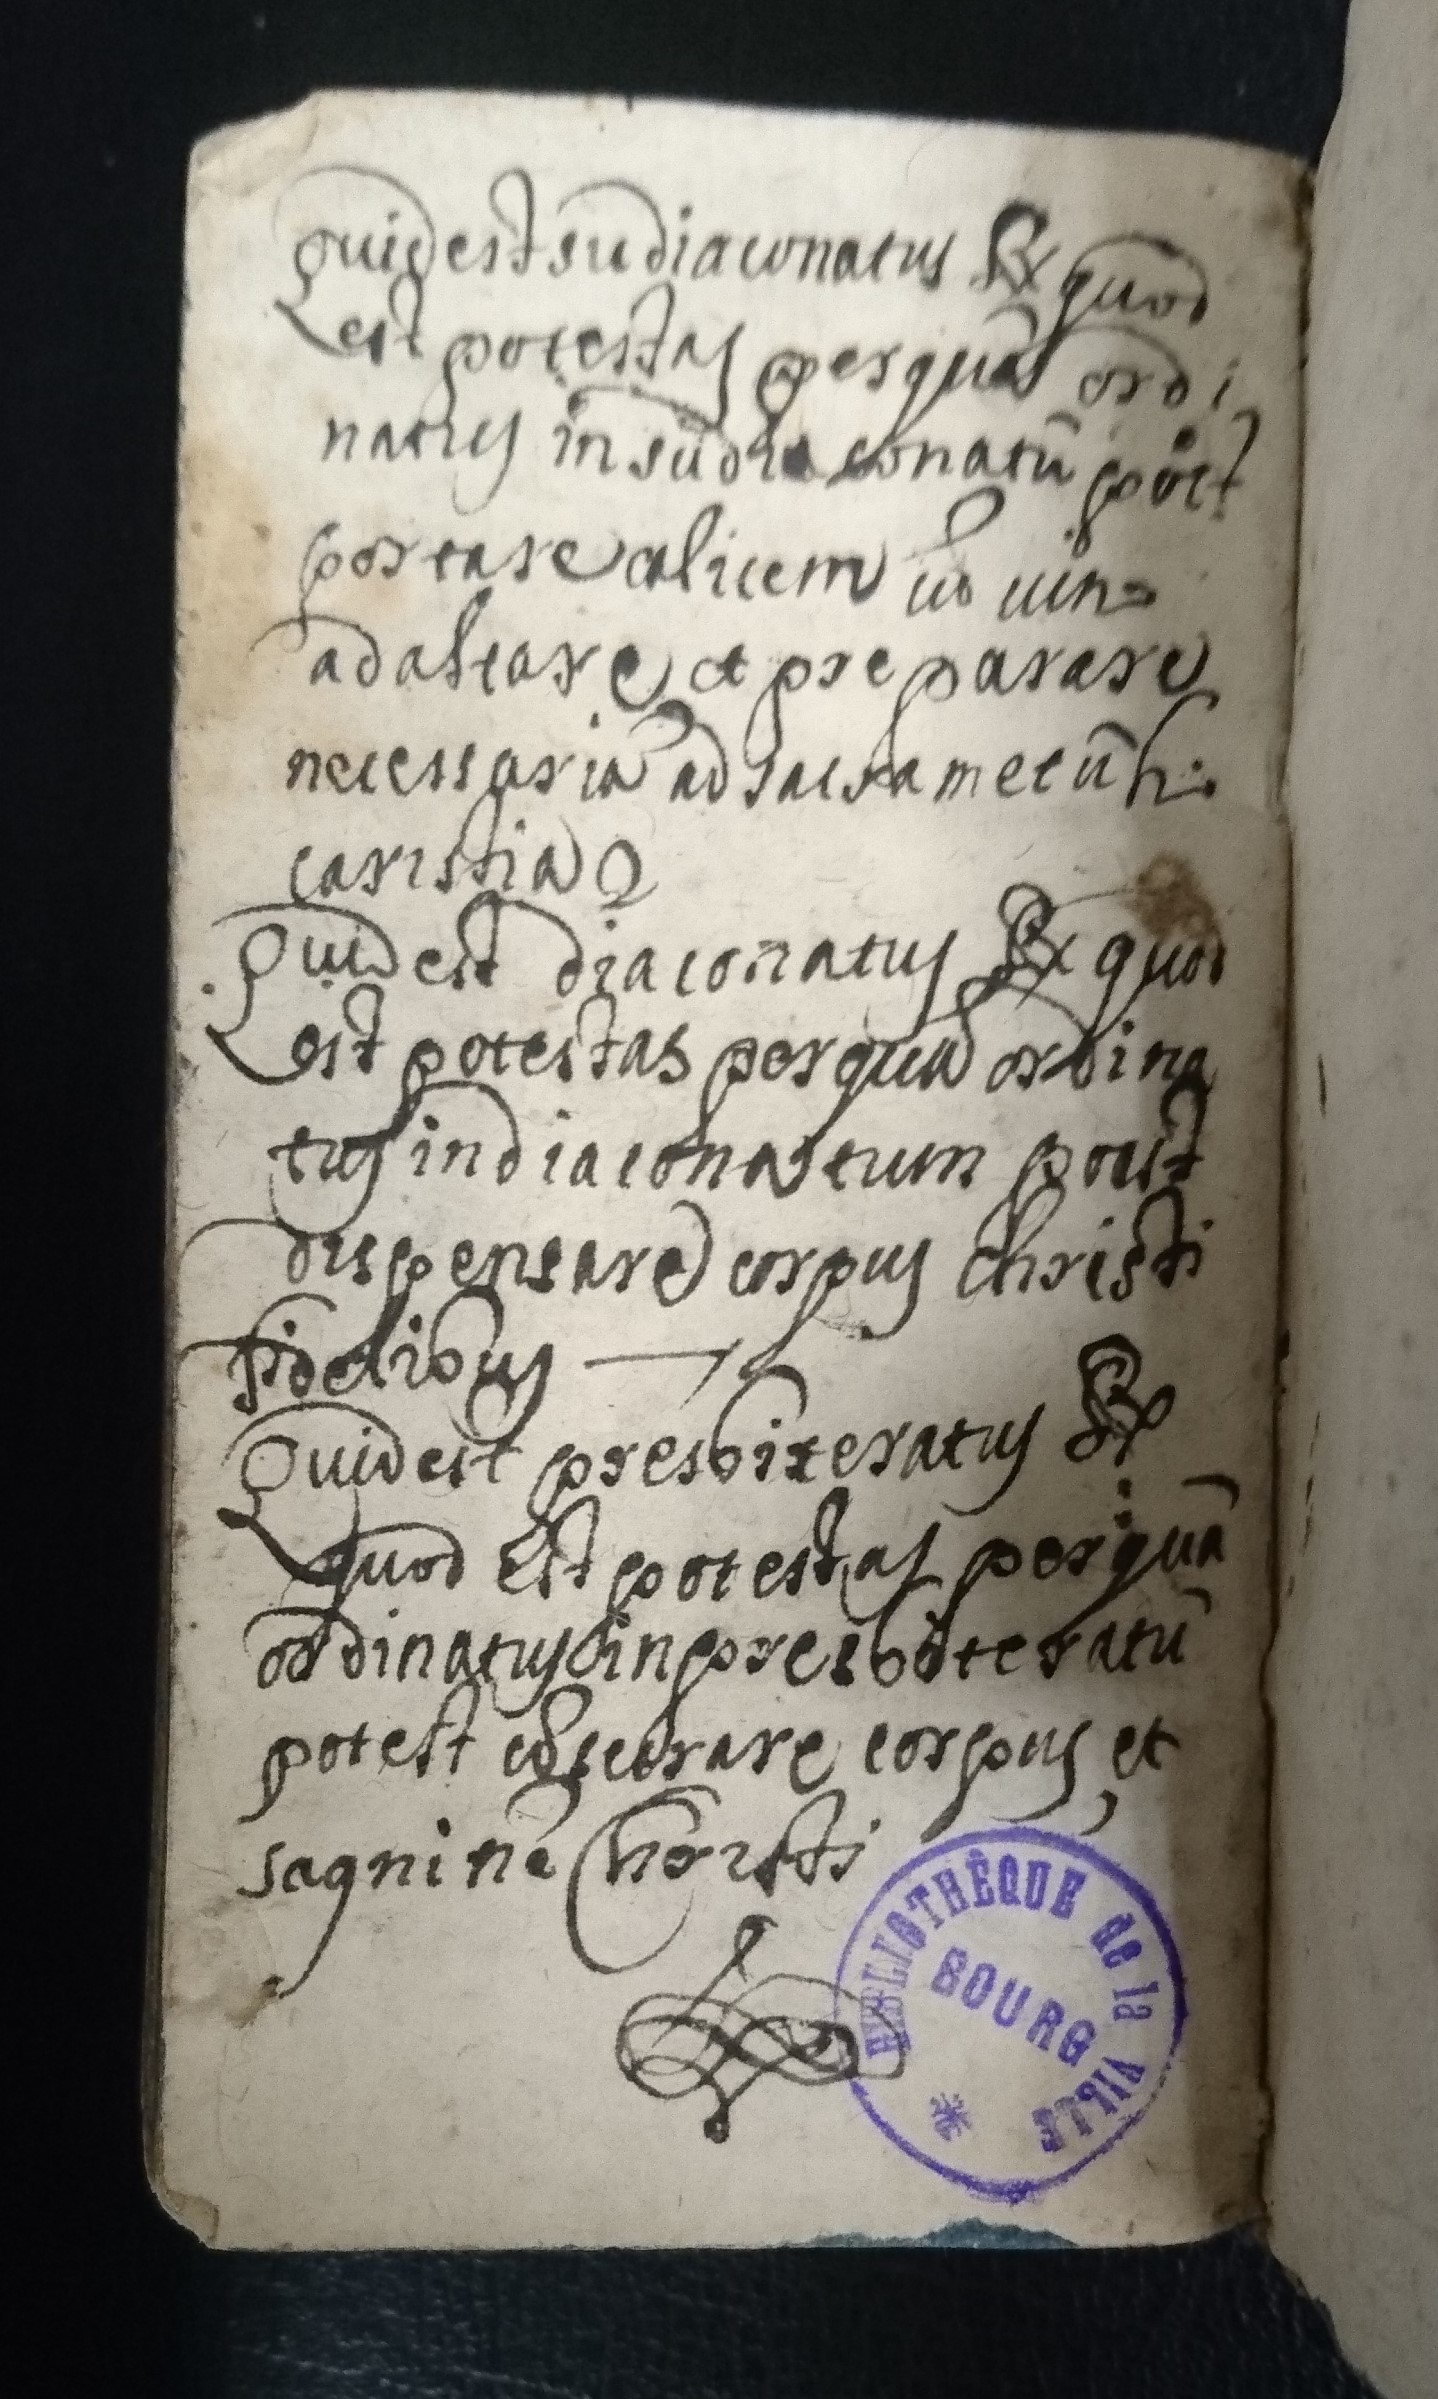 Quid est sudiaconatus ℟ quod
est potestas per quā ordi
natus in sudiaconatū pōt
portare calicem
ad altare et preparare
necessaria ad sacrametū
caristia
Quid est diaconatus ℟ quod
est potestas per quā ordina
tus in diaconatum potest
dispensare corpus christi
fidelibus
Quid est presbiteratus ℟
quod est potestas per quā
ordinatus in presbiteratū
potest cōsecrare corpus et
sagninē christi
BIBLIOTHÈQUE de la VILLE
BOURG